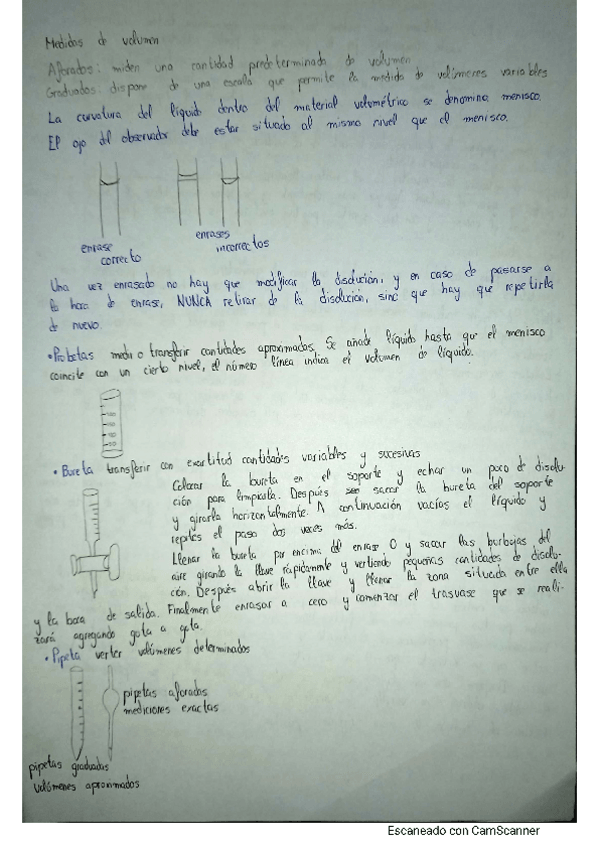 Medidas de volumen
Aforados: miden una cantidad predeterminada de volumen
Graduados: dispone de una escala que permite la medida de volúmenes variables
La curvatura del líquido dentro del material volumétrico se denomina menisco.
El ojo del observador debe estar situado al mismo nivel que el menisco.
enrase correcto
enrases incorrectos
Una vez enrasado no hay que modificar la disolución, y en caso de pasarse a
la hora de enrase, NUNCA retirar de la disolución, sino que hay que repetirla
de nuevo.
•Probetas medir o transferir cantidades aproximadas. Se añade líquido hasta que el menisco
coincite con un cierto nivel, el número línea indica el volumen de líquido.
• Bureta transferir con exactitud cantidades variables y sucesivas
Colocar la bureta en el soporte y echar un poco de disolu-
ción para limpiarla. Después sacar la bureta del soporte
y girarla horizontalmente. A continuación vacías el líquido y
repites el paso dos veces más.
Llenar la bureta por encima del enrase 0 y sacar las burbujas del
aire girando la llave rápidamente y vertiendo pequeñas cantidades de disolu-
ción. Después abrir la llave y llenar la zona situada entre ella
y la boca de salida. Finalmente enrasar a cero y comenzar el trasvase que se reali-
zará agregando gota a gota.
• Pipeta verter volúmenes determinados
pipetas aforadas
mediciones exactas
pipetas graduadas
volúmenes aproximados
Escaneado con CamScanner